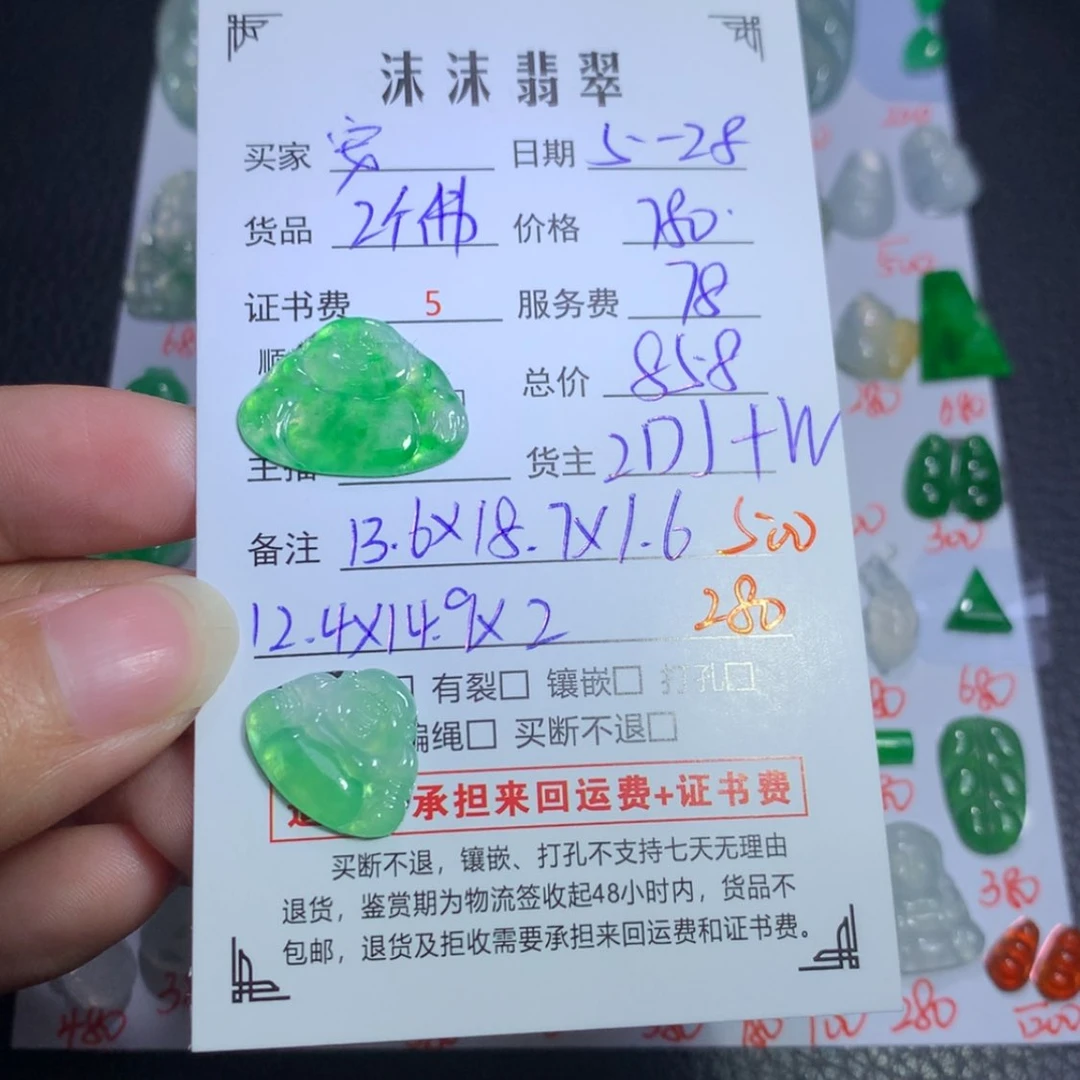 沫沫翡翠
买家 安 日期 5-28
货品 2个佛 价格 780.
证书费 5 服务费 78
顺
总价 858
主播 货主 2DJ+W
备注 13.6×18.7×1.6 500
12.4×14.9×2 280
有裂□ 镶嵌□ 打孔□
编绳□ 买断不退□
承担来回运费+证书费
买断不退，镶嵌、打孔不支持七天无理由
退货，鉴赏期为物流签收起48小时内，货品不
包邮，退货及拒收需要承担来回运费和证书费。
500
280
680
300
680
380
480
280